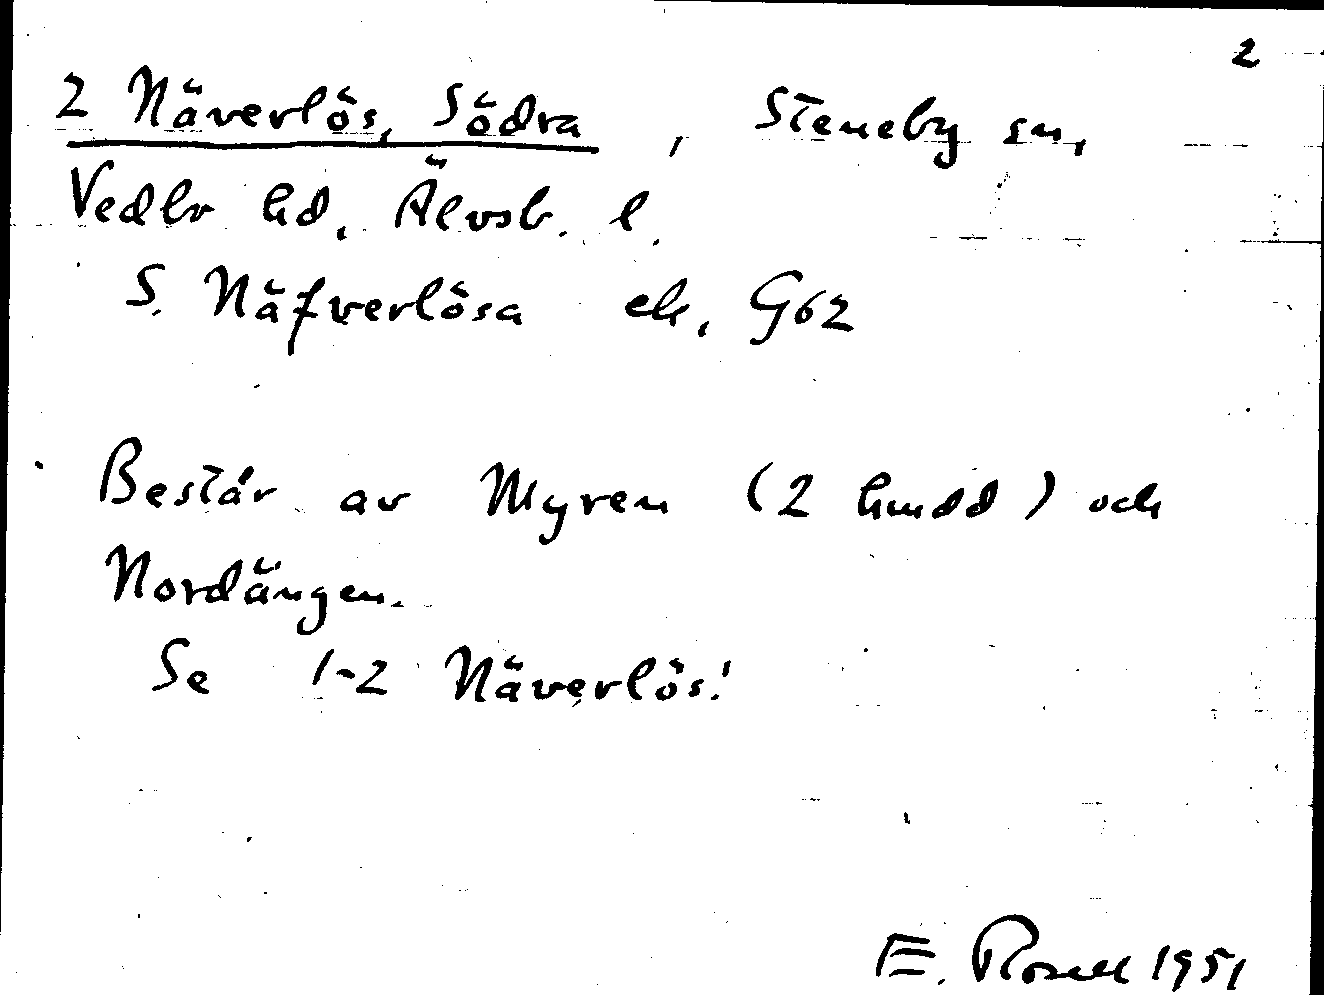 2
2 Näverlös, Södra, Steneby sn,
Vedbo hd, Älvsb. l.
S. Näfverlösa ek. G62
Består av Myren (2 hmdd) och
Nordängen.
Se 1-2 Näverlös!
E. Rosell 1951